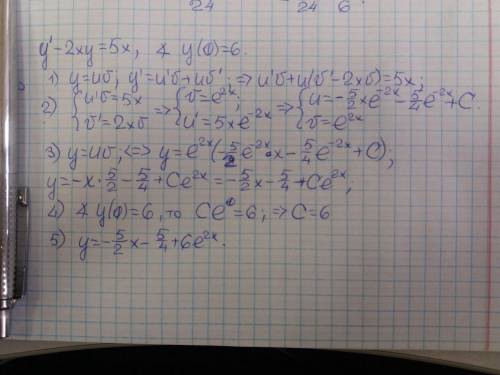 24 24 6
y'-2xy=5x, ∢ y(0)=6.
1) y=uv; y'=u'v+uv'; => u'v+u(v'-2xv)=5x;
2) { u'v=5x v'=2xv => { v=e^{2x}; u'=5xe^{-2x} => { u=-5/2xe^{-2x}-5/4e^{-2x}+C. v=e^{2x}
3) y=uv; <=> y=e^{2x}(-5/2e^{-2x}•x-5/4e^{-2x}+C);
y=-x•5/2-5/4+Ce^{2x}=-5/2x-5/4+Ce^{2x};
4) ∢ y(0)=6, то Ce^0=6; => C=6
5) y=-5/2x-5/4+6e^{2x}.